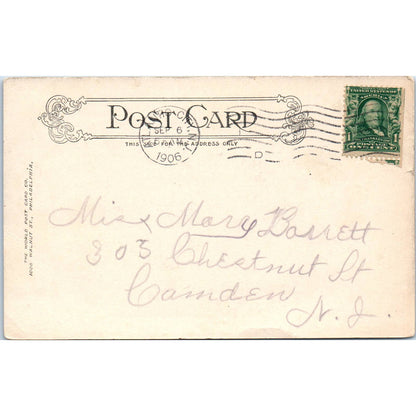 POST CARD
THIS SIDE FOR THE ADDRESS ONLY
SEP 6
1906
D
THE WORLD POST CARD CO.
1006 WALNUT ST., PHILADELPHIA.
Miss Mary Barrett
303 Chestnut St
Camden
N. J.